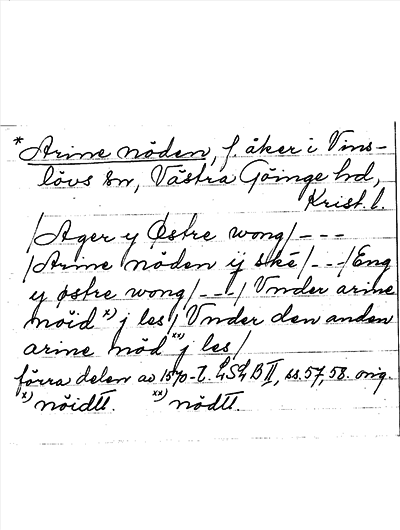 * Arine nöden, f. åker i Vins-
lövs sn, Västra Göinge hd,
Krist. l.
/Ager y Østre wong/ - - -
/Arine nöden ij ské/ - - - /Eng
y østre wong/ - - - / Vnder arine
möid x) j les/ Vnder den anden
arine nöd xx) j les/
förra delen av 1570-t. LSLB II, ss. 57, 58. orig.
x) nöidtt. xx) nödtt.